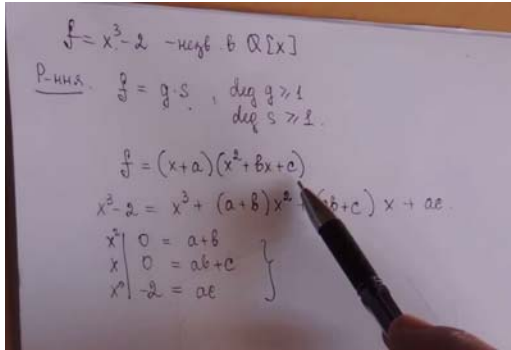 f = x³ - 2 - незв. в Q[x]
Р-ння. f = g·s, deg g ⩾ 1
deg s ⩾ 1.
f = (x+a)(x²+bx+c)
x³-2 = x³ + (a+b)x² + (ab+c)x + ac.
x² | 0 = a+b
x | 0 = ab+c
x⁰ | -2 = ac